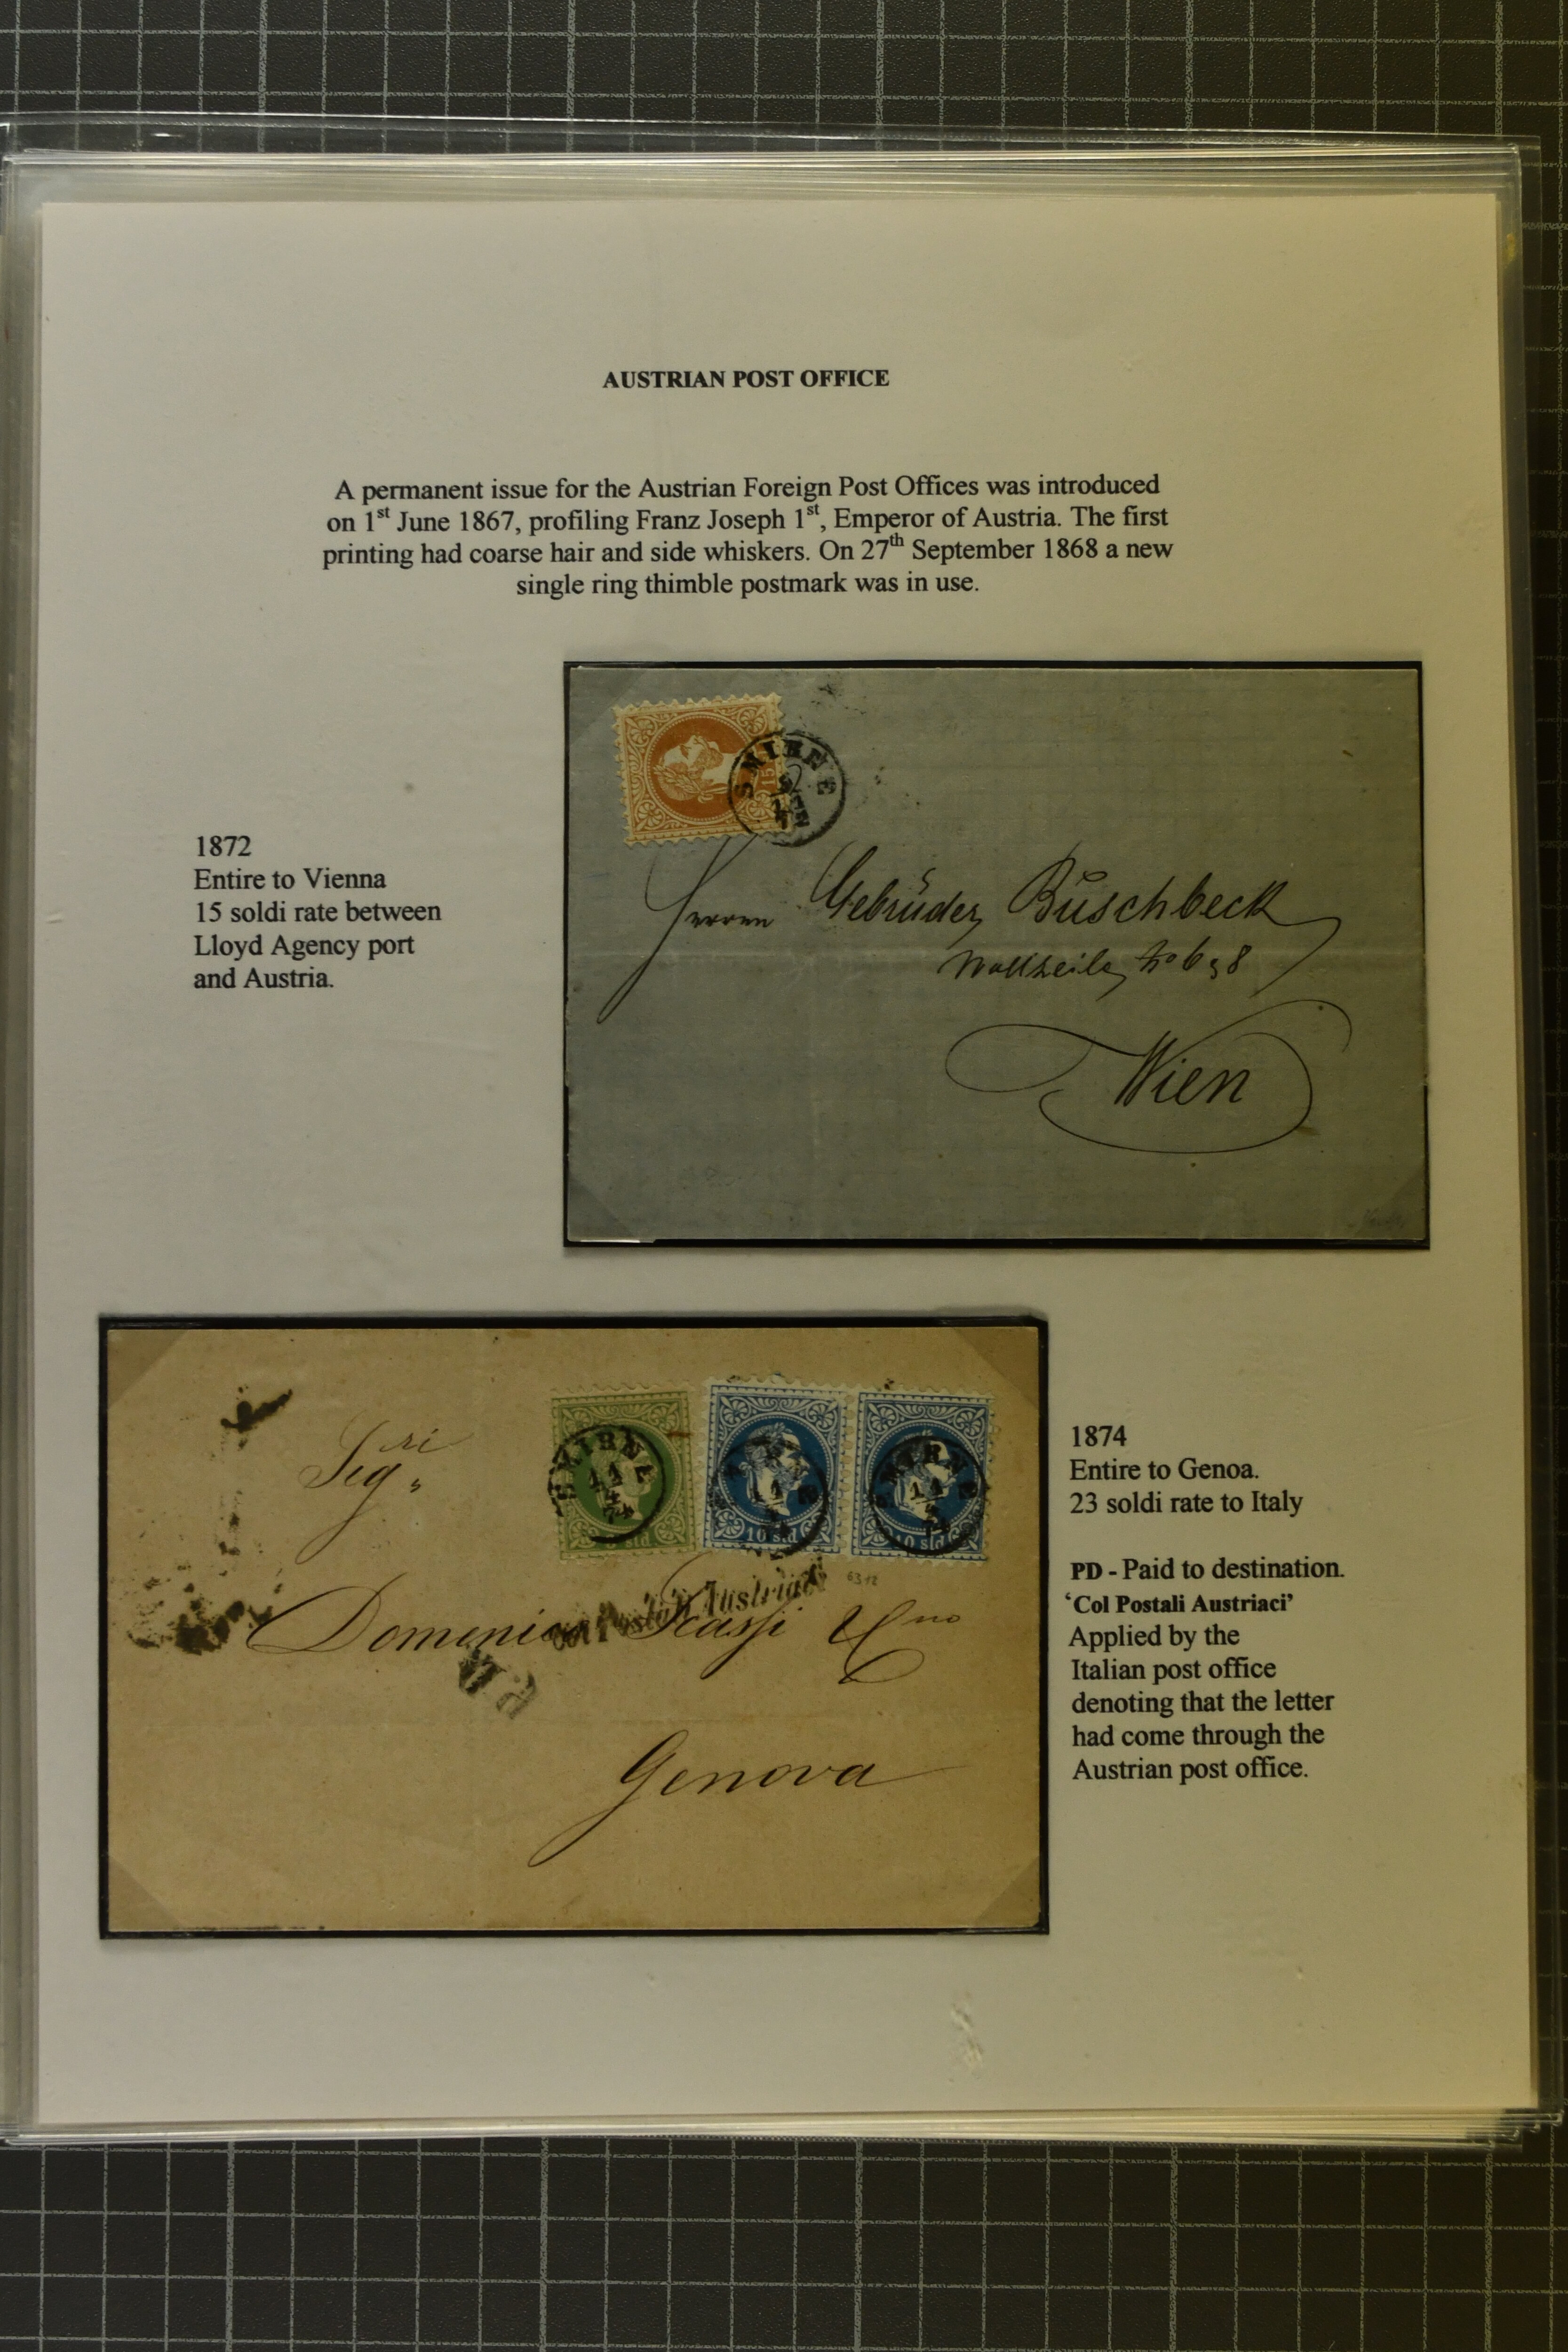 AUSTRIAN POST OFFICE
A permanent issue for the Austrian Foreign Post Offices was introduced
on 1st June 1867, profiling Franz Joseph 1st, Emperor of Austria. The first
printing had coarse hair and side whiskers. On 27th September 1868 a new
single ring thimble postmark was in use.
1872
Entire to Vienna
15 soldi rate between
Lloyd Agency port
and Austria.
15
SMIRNE
Herren Gebrüder Buschbeck
Wollzeile No 6 & 8
Wien
Sigri
SMIRNE
11
74
sld
10 sld
SMIRNE
11
10 sld
Col Postali Austriaci
6312
Domenico Scassi
PD
Genova
1874
Entire to Genoa.
23 soldi rate to Italy
PD - Paid to destination.
‘Col Postali Austriaci’
Applied by the
Italian post office
denoting that the letter
had come through the
Austrian post office.